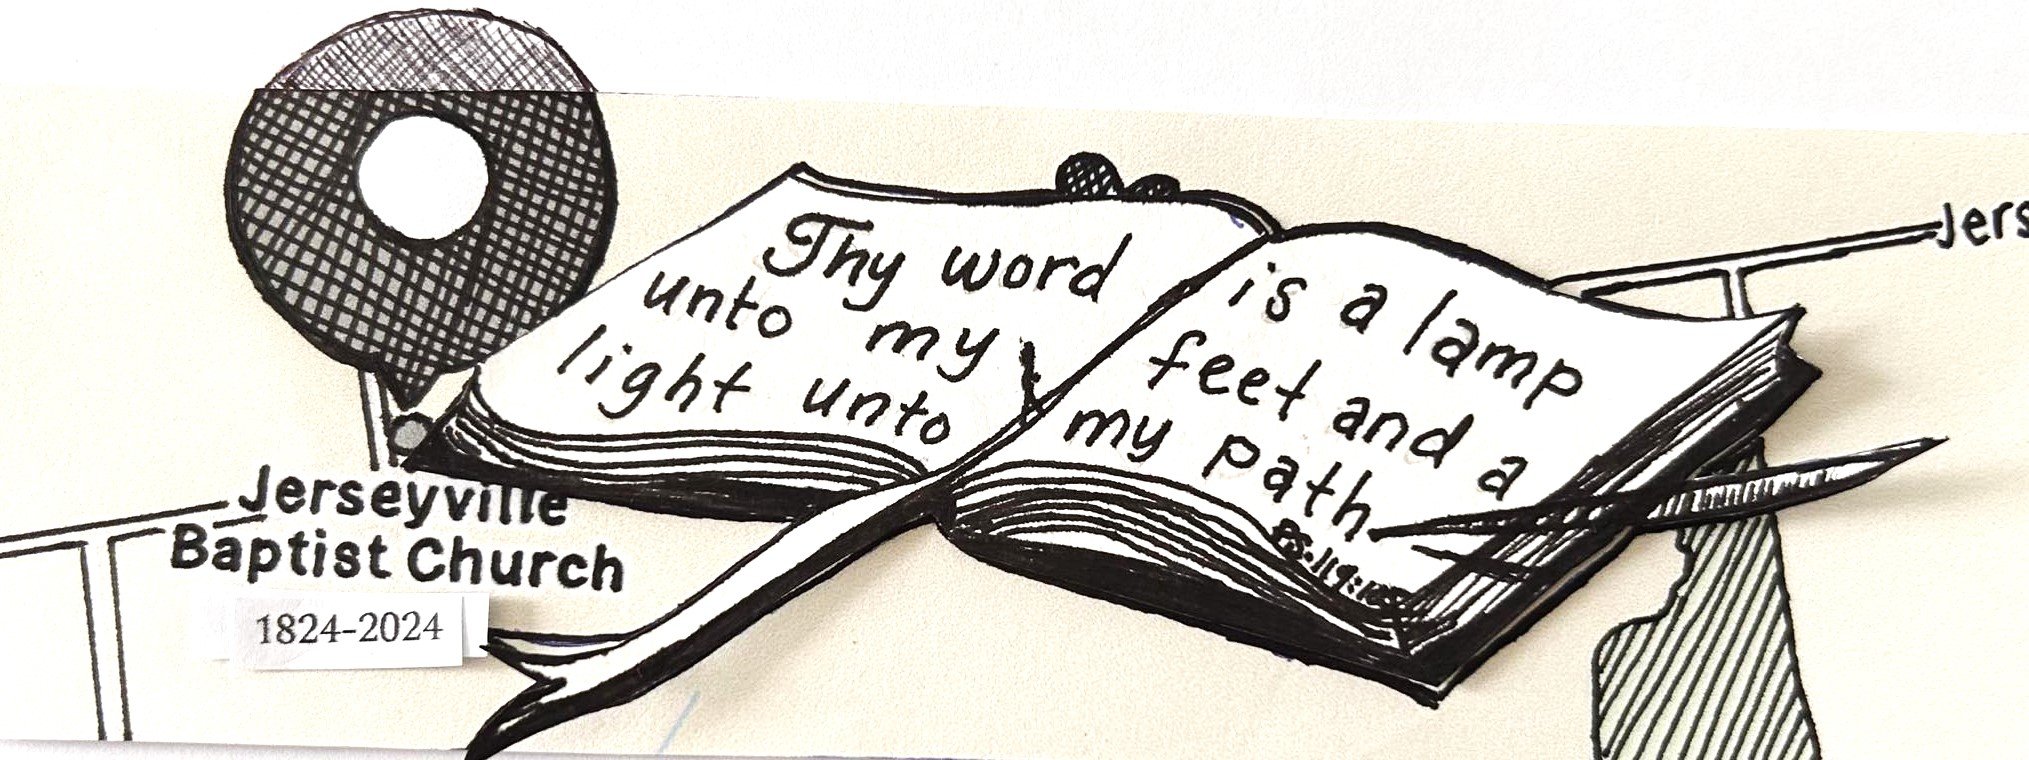 Thy word is a lamp
unto my feet and a
light unto my path.
PS. 119:105
Jers
Jerseyville
Baptist Church
1824-2024